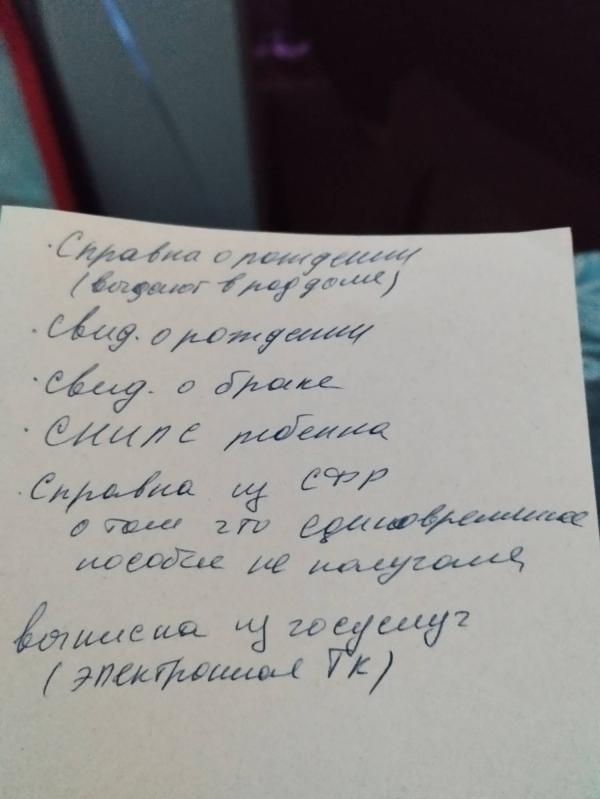 · Справка о рождении
(выдают в роддоме)
· Свид. о рождении
· Свид. о браке
· СНИЛС ребенка
· Справка из СФР
о том что единовременное
пособие не получала
выписка из госуслуг
(электронная ТК)